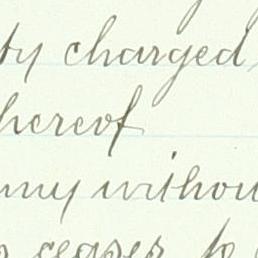 ty charged
hereof
any withou
ceases to